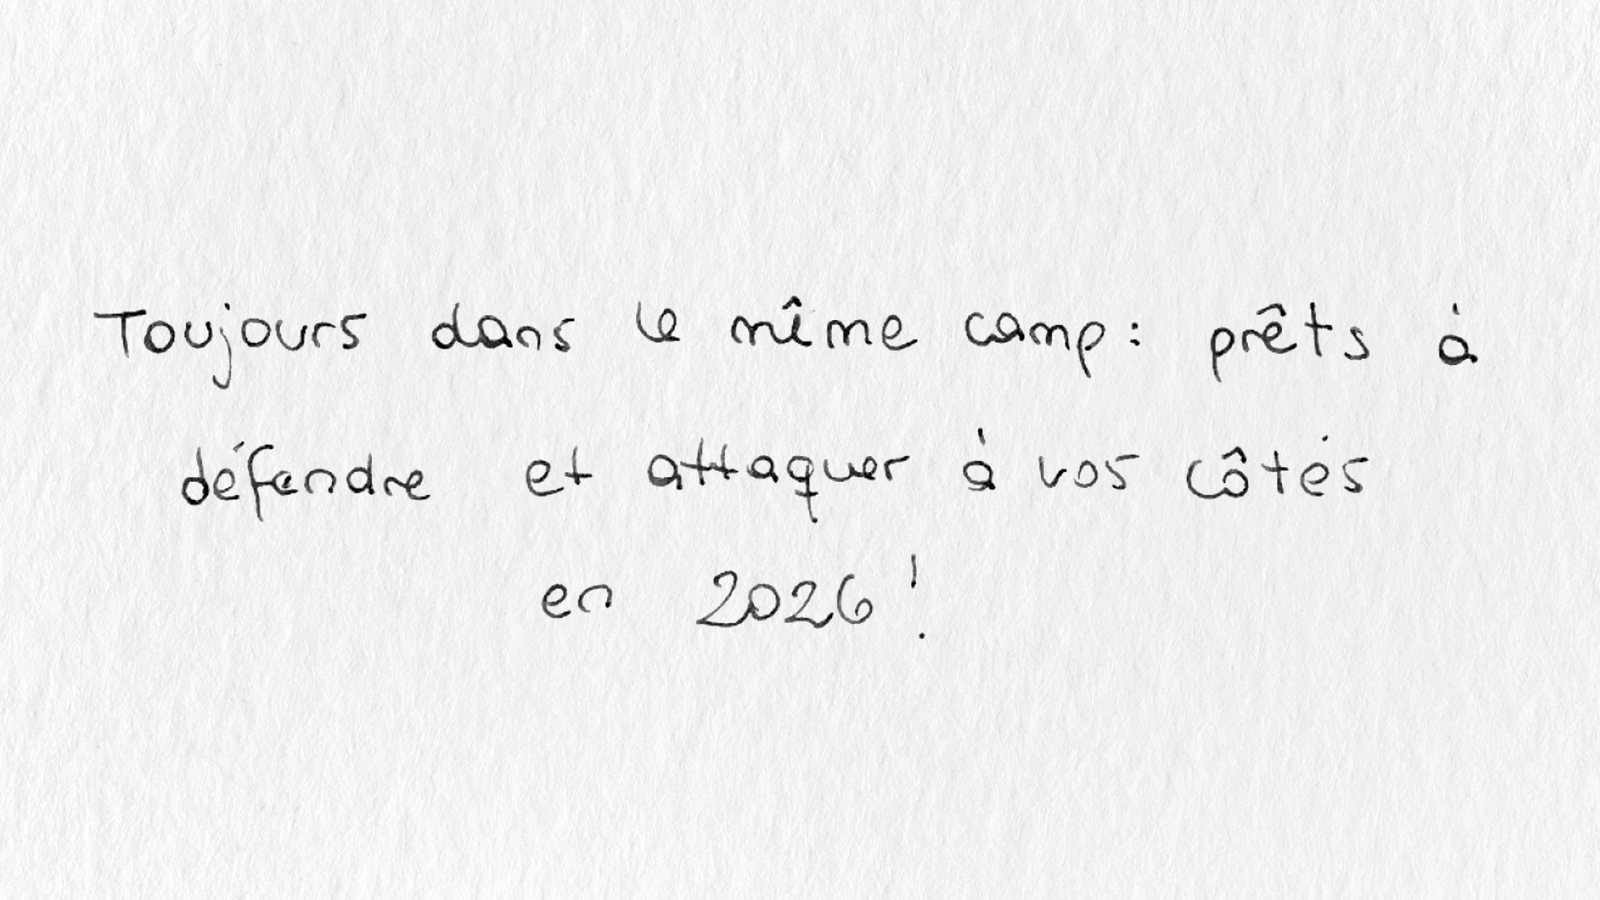 Toujours dans le même camp : prêts à
défendre et attaquer à vos côtés
en 2026 !